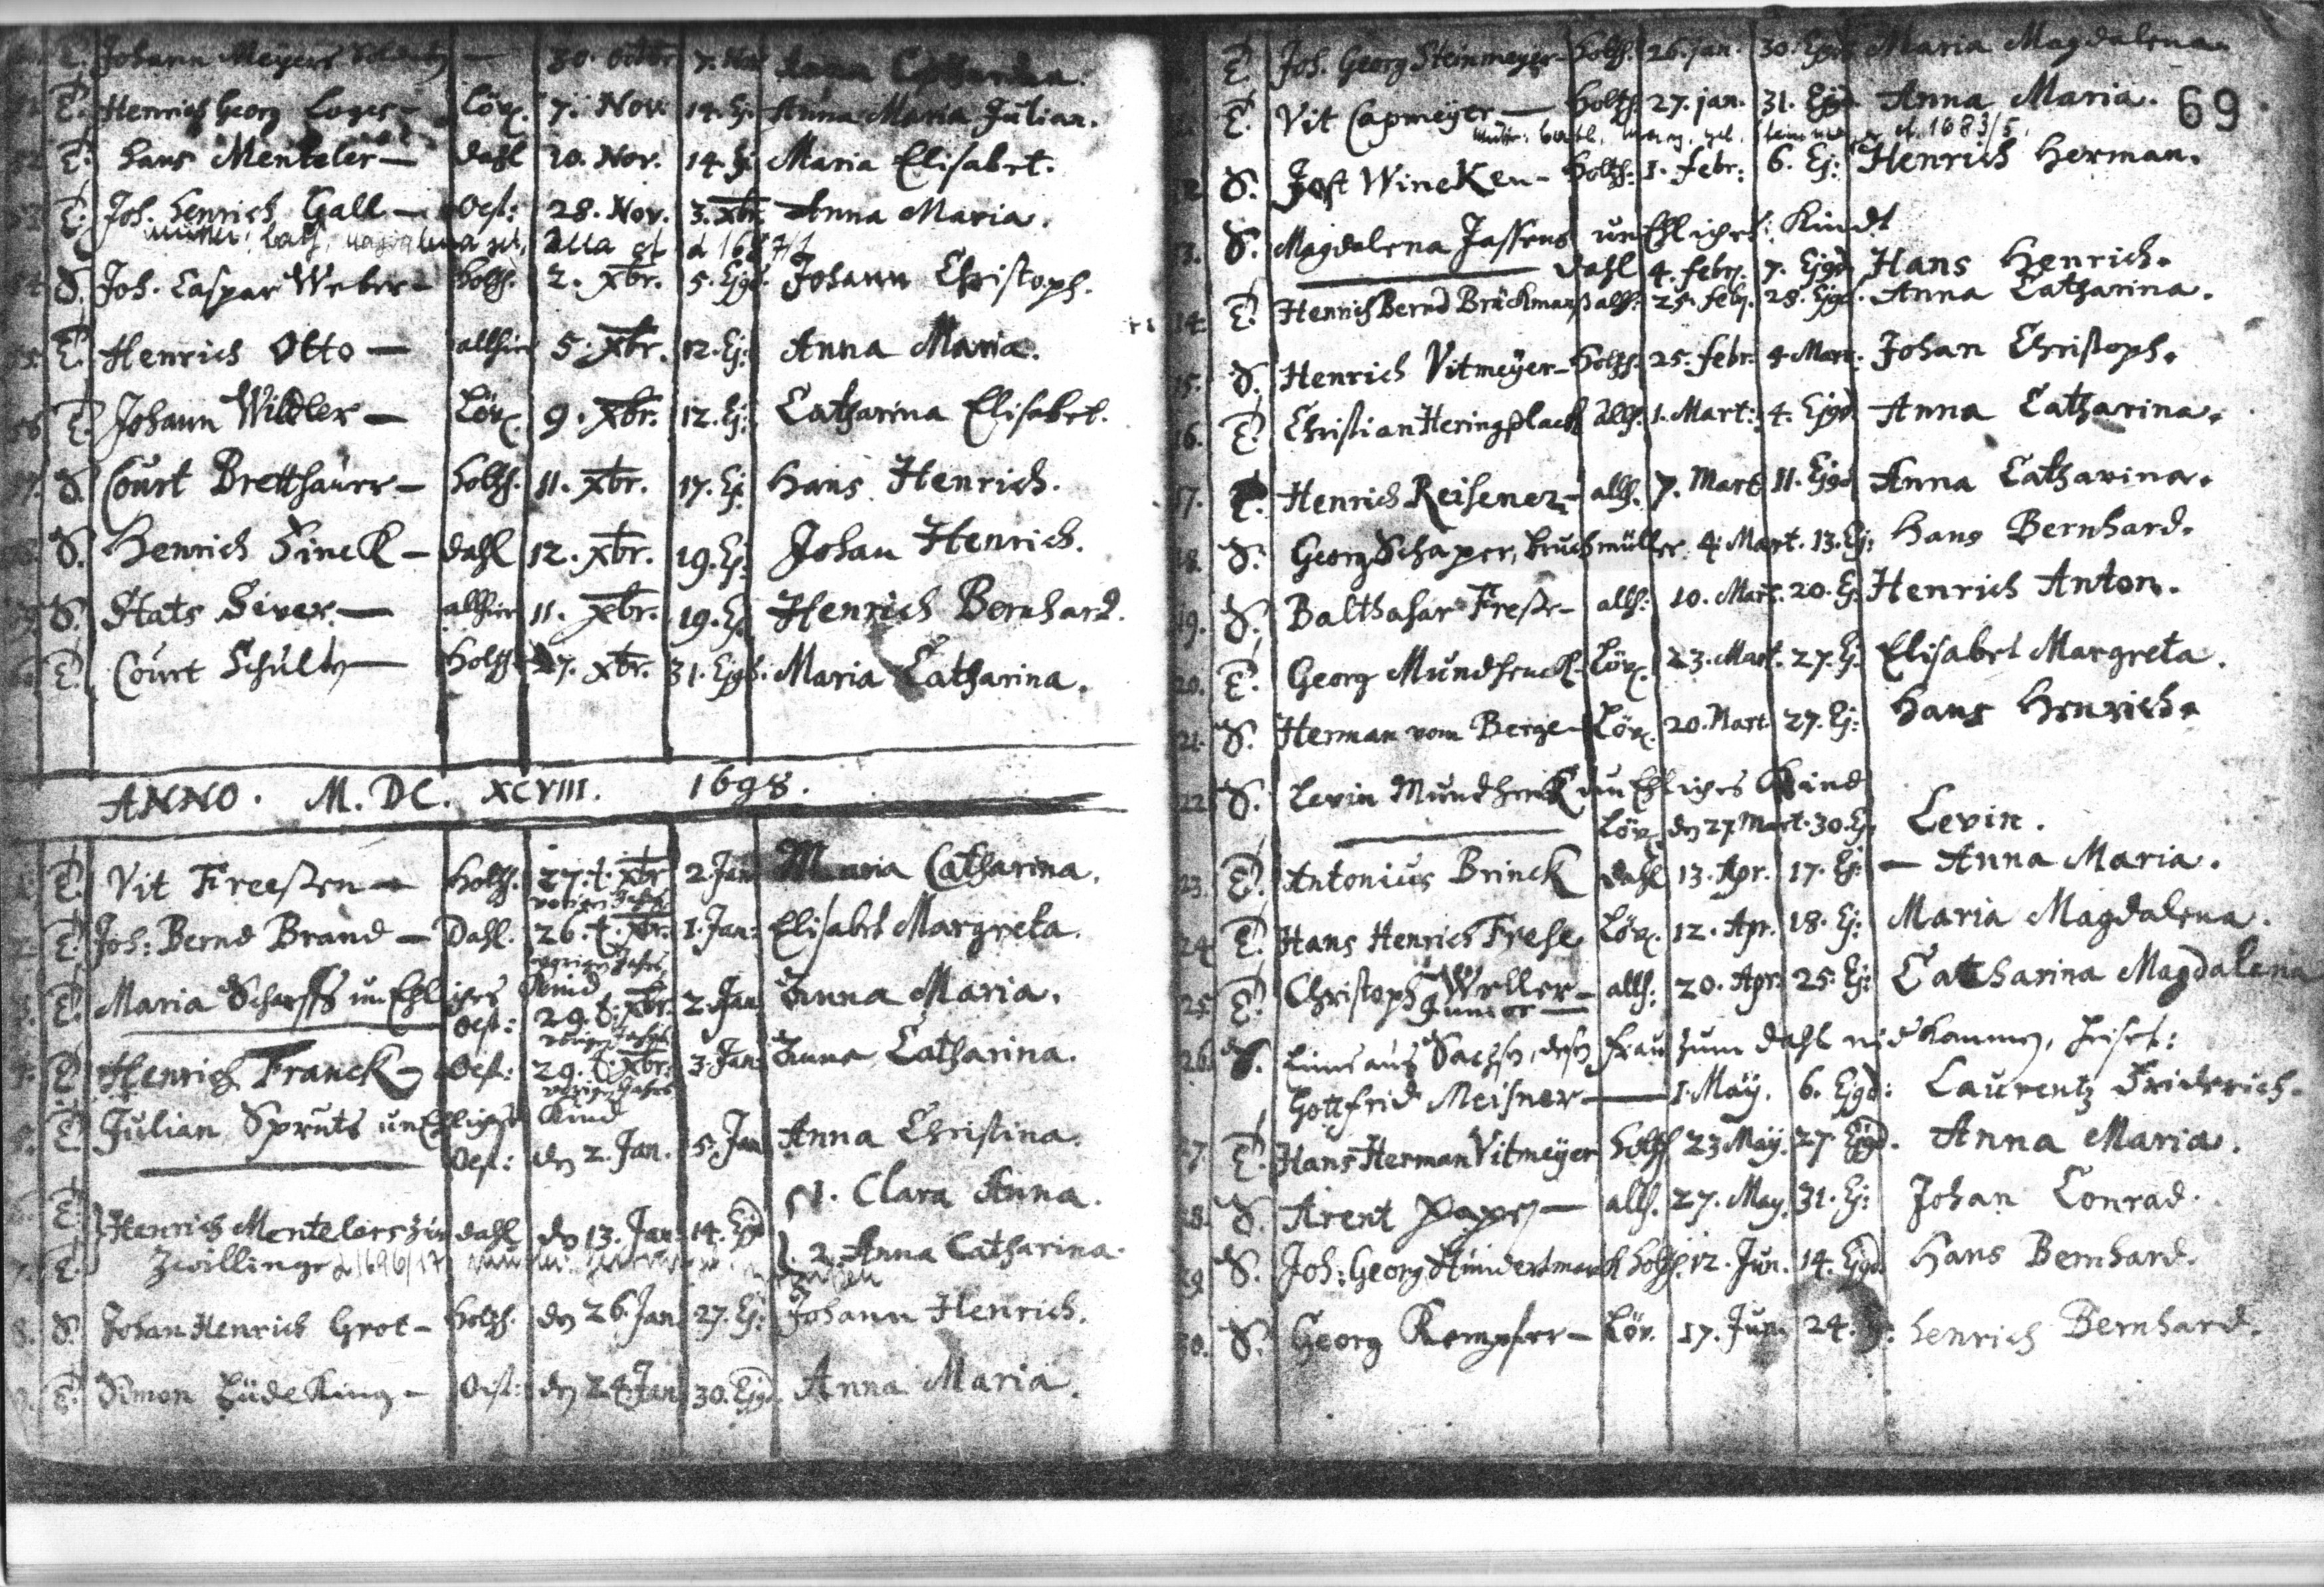 T. Johann Meyers 30. Octobr 7. Nov Anna Catharina.
T. Henrich Georg Loges — Löv. 7. Nov. 14. Ej. Anna Maria Julian.
T. Hans Menteler — Dahl 10. Nov. 14. Ej Maria Elisabet.
T. Joh. Henrich Gall — Oest: 28. Nov. 3. Xbr. Anna Maria.
S. Joh. Caspar Weber — Holtzh. 2. Xbr. 5. Ejgd. Johann Christoph.
35. T. Henrich Otto — allhier 5. Xbr. 12. Ej: Anna Maria.
36 T. Johann Wildler — Löv. 9. Xbr. 12. Ej: Catharina Elisabet.
37. S. Court Bretthauer — Holtzh. 11. Xbr. 17. Ej Hans Henrich.
S. Henrich Sinck — Dahl 12. Xbr. 19. Ej: Johan Henrich.
S. Stats Siver — allhier 11. Xbr. 19. Ej Henrich Bernhard.
T. Court Schultz — Holtzh 27. Xbr. 31. Ejgd. Maria Catharina.
ANNO. M. DC. XCVIII. 1698.
T. Vit Freesen — Holtzh. 27. t. Xbr 2 Jan Maria Catharina.
vorigen Jahrs
T. Joh: Bernd Brand — Dahl. 26. t. Xbr. 1. Jan: Elisabet Margreta.
vorigen Jahrs
T. Maria Scharffs unEhliches Kind
Oest: 29. t. Xbr. 2. Jan Anna Maria.
vorigen Jahrs
T. Henrich Franck — Oest: 29. t. Xbr: 3. Jan: Anna Catharina.
vorigen Jahrs
T. Julian Spruts unEhliches Kind
Oest: den 2. Jan. 5. Jan Anna Christina.
T. Henrich Mentelers Dahl den 13. Jan: 14. Ejgd 1. Clara Anna.
7. T. Zwillinge 2. Anna Catharina.
8. S. Johan Henrich Grot — Holtzh. den 26. Jan 27. Ej: Johann Henrich.
T. Simon Lüdeking — Oest: den 24. Jan 30. Ejgd. Anna Maria.
69
T. Joh. Georg Steinmeyer — Holtzh. 26. Jan. 30. Ejgd Maria Magdalena.
T. Vit Capmeyer — Holtzh. 27. jan. 31. Ejgd. Anna Maria.
1683/5
S. Jost Wineken — Holtzh: 1. Febr: 6. Ej: Henrich Herman.
S. Magdalena Jassens unEhliches Kindt
Dahl 4. Febr. 7. Ejgd. Hans Henrich.
14. T. Henrich Bernd Brückman allh. 25. Feb. 28. Ejgd. Anna Catharina.
15. S. Henrich Vitmeyer — Holtzh. 25. Febr. 4. Mart. Johan Christoph.
16. T. Christian Heringslack allh. 1. Mart: 4. Ejgd. Anna Catharina.
17. T. Henrich Reisener — allh. 7. Mart 11. Ejgd Anna Catharina.
18. S. Georg Schaper, Bruchmüller 4. Mart. 13. Ej: Hans Bernhard.
19. S. Balthasar Frese — allh: 10. Mart. 20. Ej. Henrich Anton.
20. T. Georg Mundhenck — Löv. 23. Mart. 27. Ej: Elisabet Margreta.
21. S. Herman vom Berge — Löv. 20. Mart. 27. Ej: Hans Henrich.
22. S. Levin Mundhenck unEhliches Kind
Löv. den 27. Mart. 30. Ej. Levin.
23. T. Antonius Brinck Dahl 13. Apr. 17. Ej: — Anna Maria.
24 T. Hans Henrich Frese Löv. 12. Apr. 18. Ej: Maria Magdalena.
25. T. Christoph Weller — allh: 20. Apr. 25. Ej: Catharina Magdalena
Junior —
26. S. Frau zum Dahl
Gottfrid Meisner — 1. May. 6. Ejgd: Laurentz Friderich.
27. T. Hans Herman Vitmeyer Holtzh 23 May. 27. Ejgd. Anna Maria.
28. S. Arent Papen — allh. 27. May. 31. Ej: Johan Conrad.
29 S. Joh: Georg Hundertmarck Holtzh. 12. Jun. 14. Ejgd. Hans Bernhard.
30. S. Georg Kempfer — Löv. 17. Jun. 24. Henrich Bernhard.